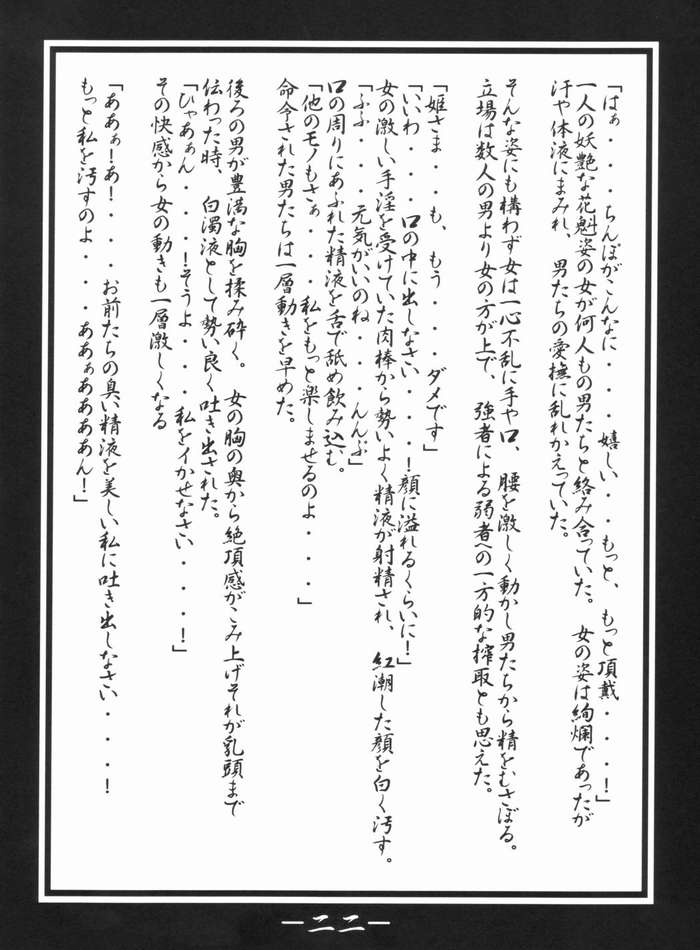 「はぁ・・・ちんぽがこんなに・・・嬉しい・・もっと、もっと頂戴・・・！」
一人の妖艶な花魁姿の女が何人もの男たちと絡み合っていた。　女の姿は絢爛であったが
汗や体液にまみれ、男たちの愛撫に乱れかえっていた。
そんな姿にも構わず女は一心不乱に手や口、腰を激しく動かし男たちから精をむさぼる。
立場は数人の男より女の方が上で、強者による弱者への一方的な搾取とも思えた。
「姫さま・・も、もう・・・ダメです」
「いいわ・・・口の中に出しなさい・・・！顔に溢れるくらいに！」
女の激しい手淫を受けていた肉棒から勢いよく精液が射精され、紅潮した顔を白く汚す。
「ふふ・・・元気がいいのね・・・んんぶ」
口の周りにあふれた精液を舌で舐め飲み込む。
「他のモノもさぁ・・・私をもっと楽しませるのよ・・・」
命令された男たちは一層動きを早めた。
後ろの男が豊満な胸を揉み砕く。　女の胸の奥から絶頂感がこみ上げそれが乳頭まで
伝わった時、白濁液として勢い良く吐き出された。
「ひゃあぁん・・・！そうよ・・・私をイかせなさい・・・！」
その快感から女の動きも一層激しくなる
「ああぁ！あ！・・・お前たちの臭い精液を美しい私に吐き出しなさい・・・！
もっと私を汚すのよ・・・ああぁああああん！」
－二二－